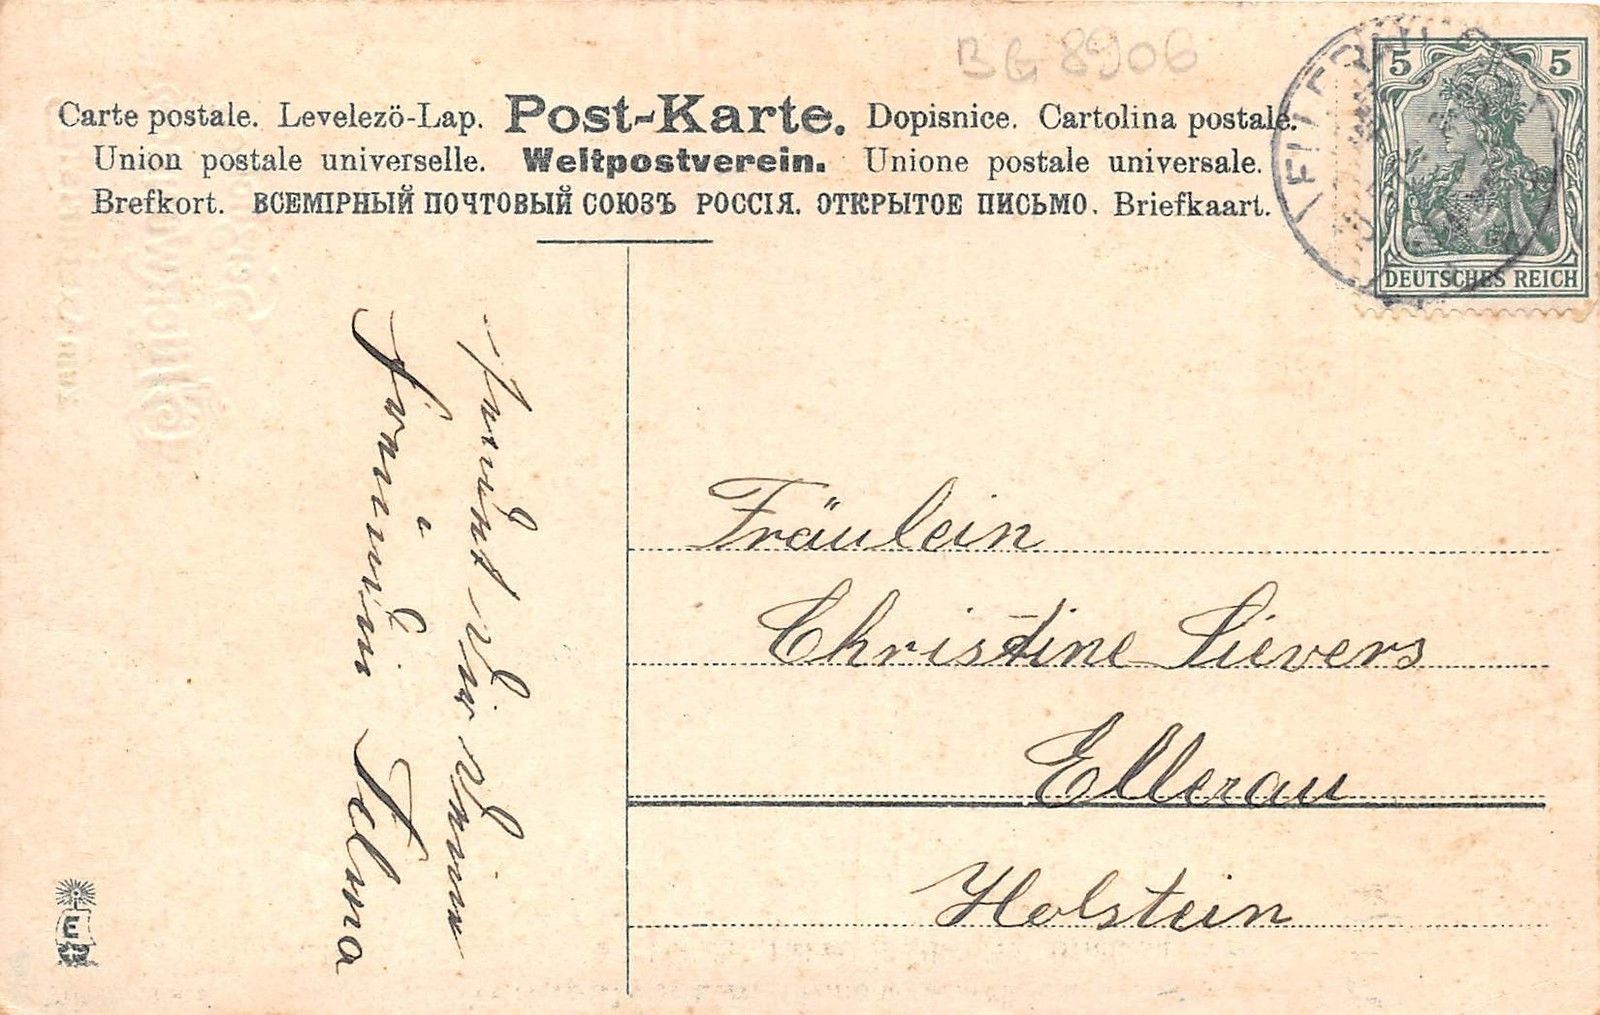 BG 8906
Carte postale. Levelezö-Lap. Post-Karte. Dopisnice. Cartolina postale.
Union postale universelle. Weltpostverein. Unione postale universale.
Brefkort. ВСЕМІРНЫЙ ПОЧТОВЫЙ СОЮЗЪ РОССІЯ. ОТКРЫТОЕ ПИСЬМО. Briefkaart.
5 5
DEUTSCHES REICH
sendet Dir Deine
Freundin Selma
Fräulein
Christine Sievers
Ellerau
Holstein